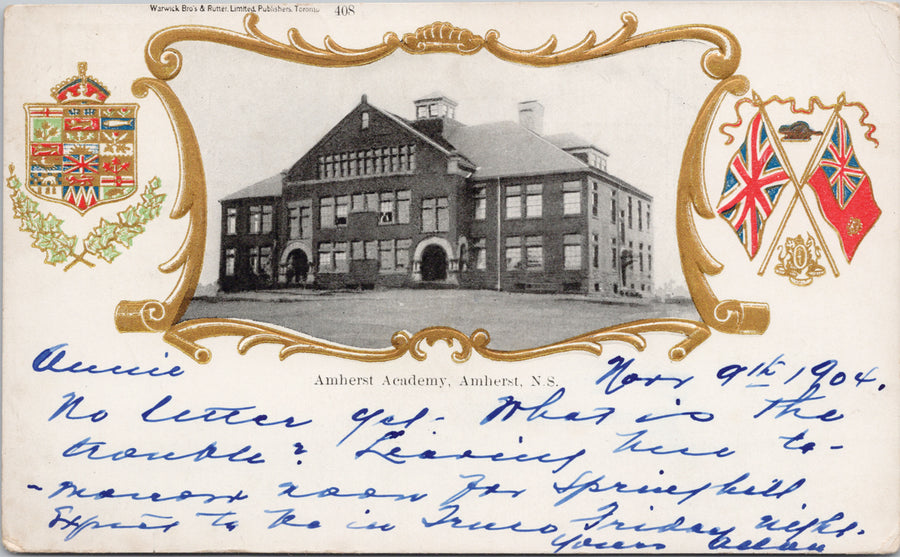 Warwick Bro's & Rutter, Limited, Publishers, Toronto 408
Amherst Academy, Amherst, N.S.
Annie Nov 9th 1904.
No letter yet - What is the
trouble? Leaving here to-
-morrow noon for Springhill
Expect to be in Truro Friday night.
Yours